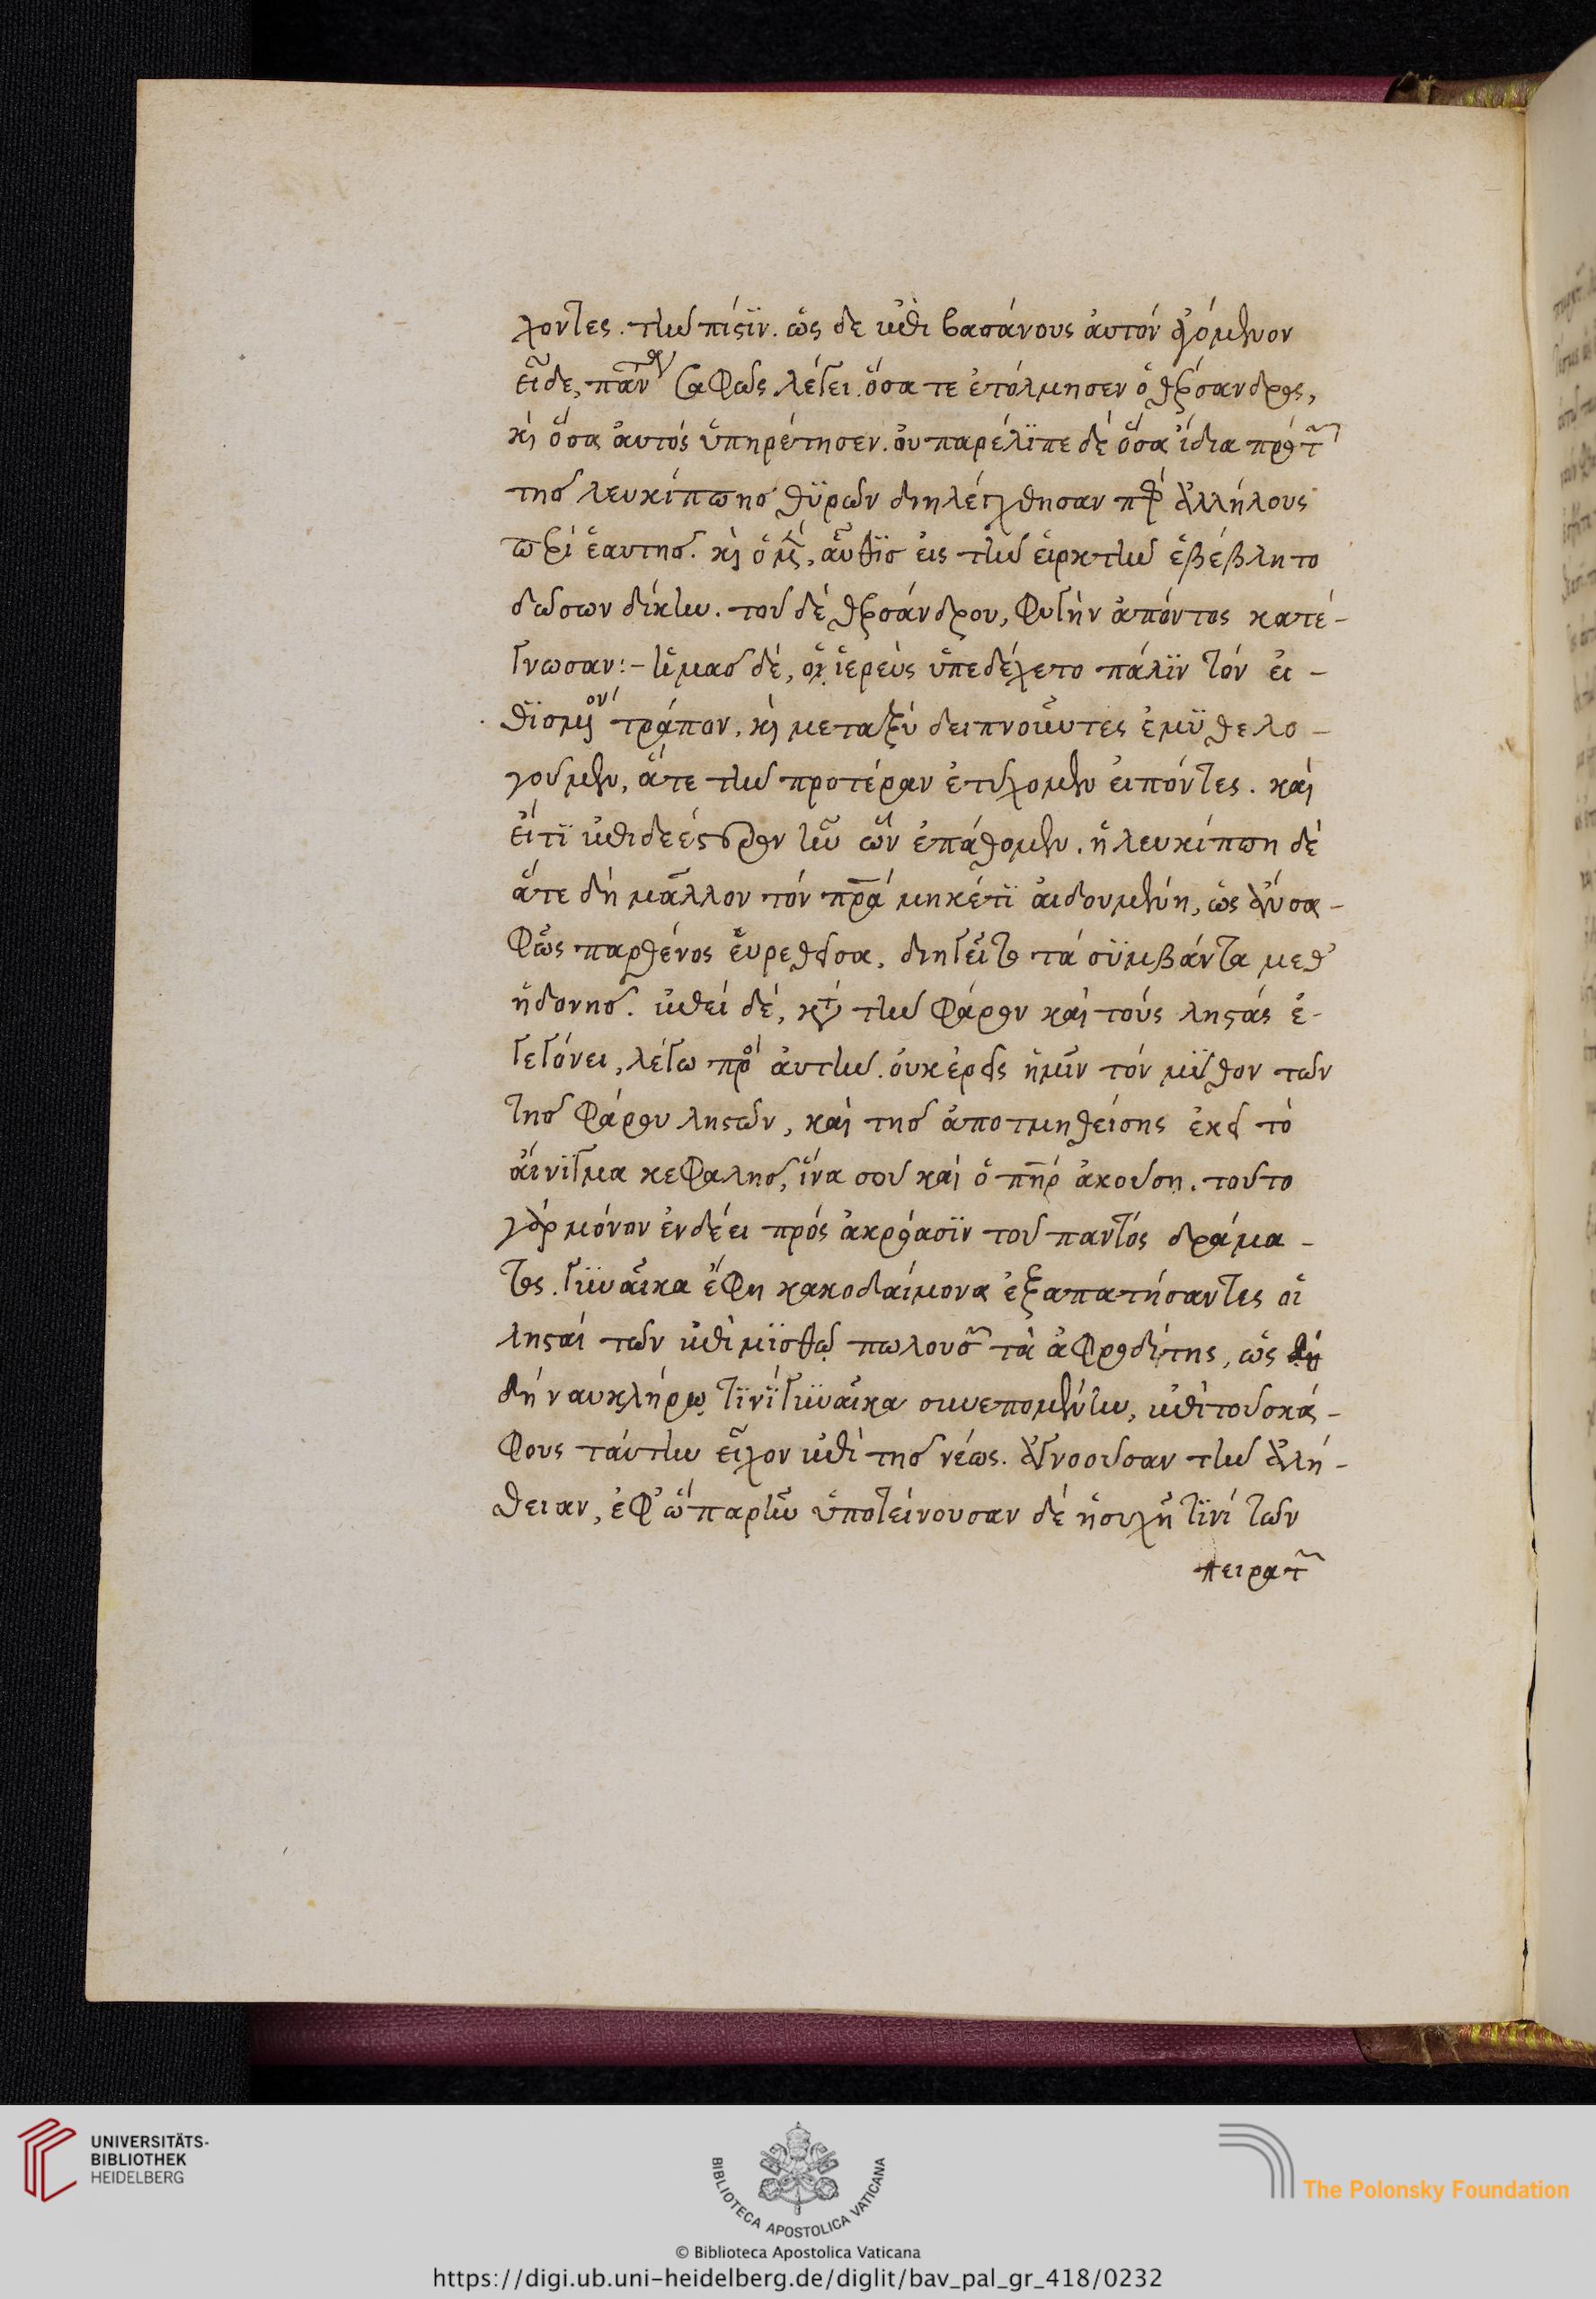 χοντες. τὴν πίστιν. ὡς δε ἐπὶ βασάνους ἀυτόν ἀγόμενον
εἶδε, πάντα σαφῶς λέγει. ὅσα τε ἐτόλμησεν ὁ θέρσανδρος,
κὶ ὅσα ἀυτός ὑπηρέτησεν. ὀυ παρέλϊπε δέ ὅσα ἰδια πρό τῶν
τησ λευκίππησ θϋρων διηλέγχθησαν πρὸς ἀλλήλους
περί ἑαυτησ. κὶ ὁ μέν, αὖθϊσ ἐις τὴν ἑιρκτὴν ἐβέβλητο
δώσων δίκην. του δέ θερσάνδρου, φυγὴν ἀπόντος κατέ-
γνωσαν:- ἡμασ δέ, ὁ ἱερεύς ὑπεδέχετο πάλϊν τόν ἐι -
θϊσμένον τρόπον, κὶ μεταξύ δειπνοῦντες ἐμϋθελο -
γουμεν, ἅτε τὴν προτέραν ἐτυχομεν ἐιπόντες. καὶ
ἐί τϊ ἐπιδεέστερον ἦν ὧν ἐπάθομεν. ἡ λευκίππη δέ
ἅτε δή μᾶλλον τόν πρᾱ́ μηκέτϊ ἀιδουμένη, ὡς ἂν σα -
φῶς παρθένος ἑυρεθεῖσα, διηγεῖτο τά σϋμβάντα μεθ'
ἡδονησ. ἐπεί δέ, κατά τὴν φάρον καὶ τούς ληστάς ἐ-
γεγόνει, λέγω πρός ἀυτὴν. ὀυκ ἐρεῖς ἡμῖν τόν μῦθον των
τησ φάρου ληστων, καὶ τησ ἀποτμηθείσης ἐκεῖ τὸ
ἀίνϊγμα κεφαλησ, ἵνα σου καὶ ὁ πη̄ρ ἀκουση. τουτο
γὰρ μόνον ἐνδέει πρός ἀκρόασϊν του παντός δράμα -
τος. γϋναῖκα ἔφη κακοδαίμονα ἐξαπατήσαντες οἱ
λησταί των ἐπὶ μϊσθῶ πωλουσῶν τὰ ἀφροδίτης, ὡς δή
δή ναυκλήρῳ τϊνί γϋναῖκα συνεπομένην, ἐπὶ του σκά -
φους ταύτην εἶχον ἐπὶ τησ νέως. ἀγνοουσαν τὴν ἀλή -
θειαν, ἐφ' ὧ παρῆν ὑποτείνουσαν δέ ἡσυχῆ τϊνί των
πειρατῶν